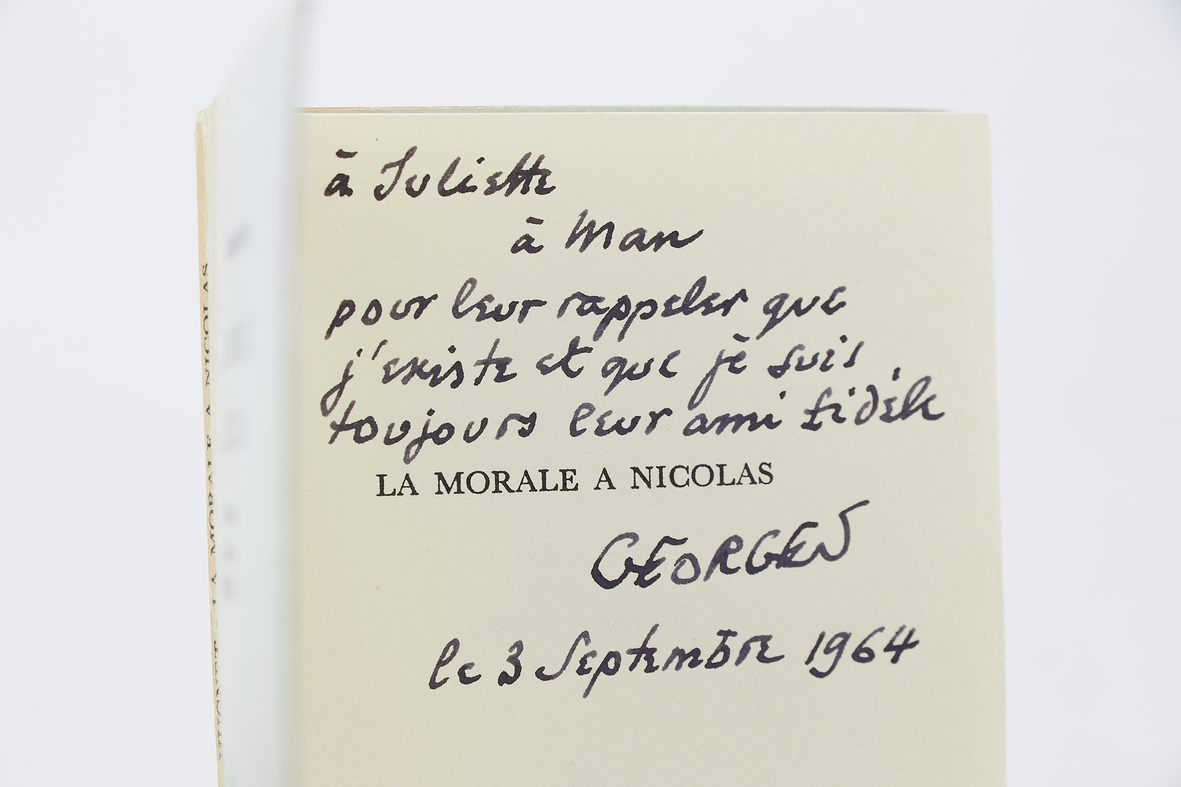 à Juliette
à Man
pour leur rappeler que
j'existe et que je suis
toujours leur ami fidèle
LA MORALE A NICOLAS
GEORGES
le 3 Septembre 1964
LA MORALE A NICOLAS